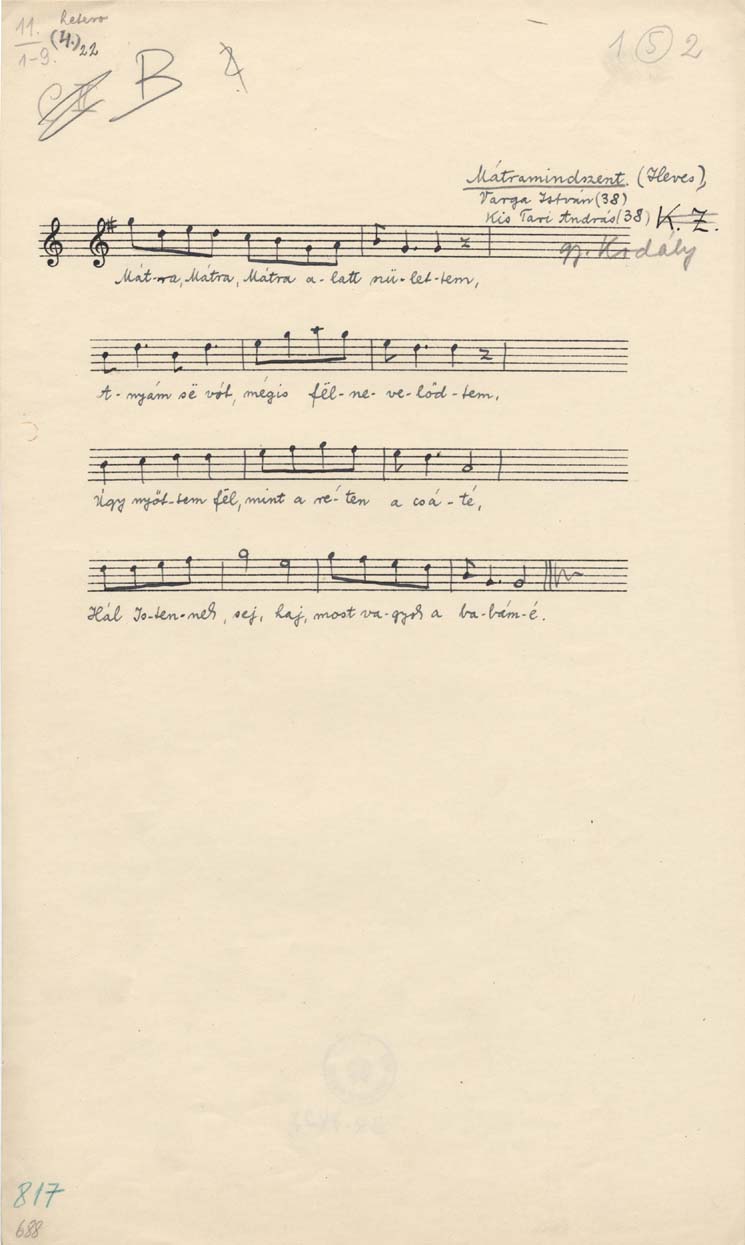 11.
hetero
1-9.
(4.) 22
B
1 (5) 2
Mátramindszent. (Heves),
Varga István (38)
Kis Tari András (38) K. Z.
gy. Kodály
Mát-ra, Mátra, Mátra a-latt szü-let-tem,
A-nyám së vót, mégis fël-ne-ve-lőd-tem,
Úgy nyőt-tem fël, mint a ré-ten a csá-té,
Hál Is-ten-nek, sej, haj, most va-gyok a ba-bám-é.
817
688